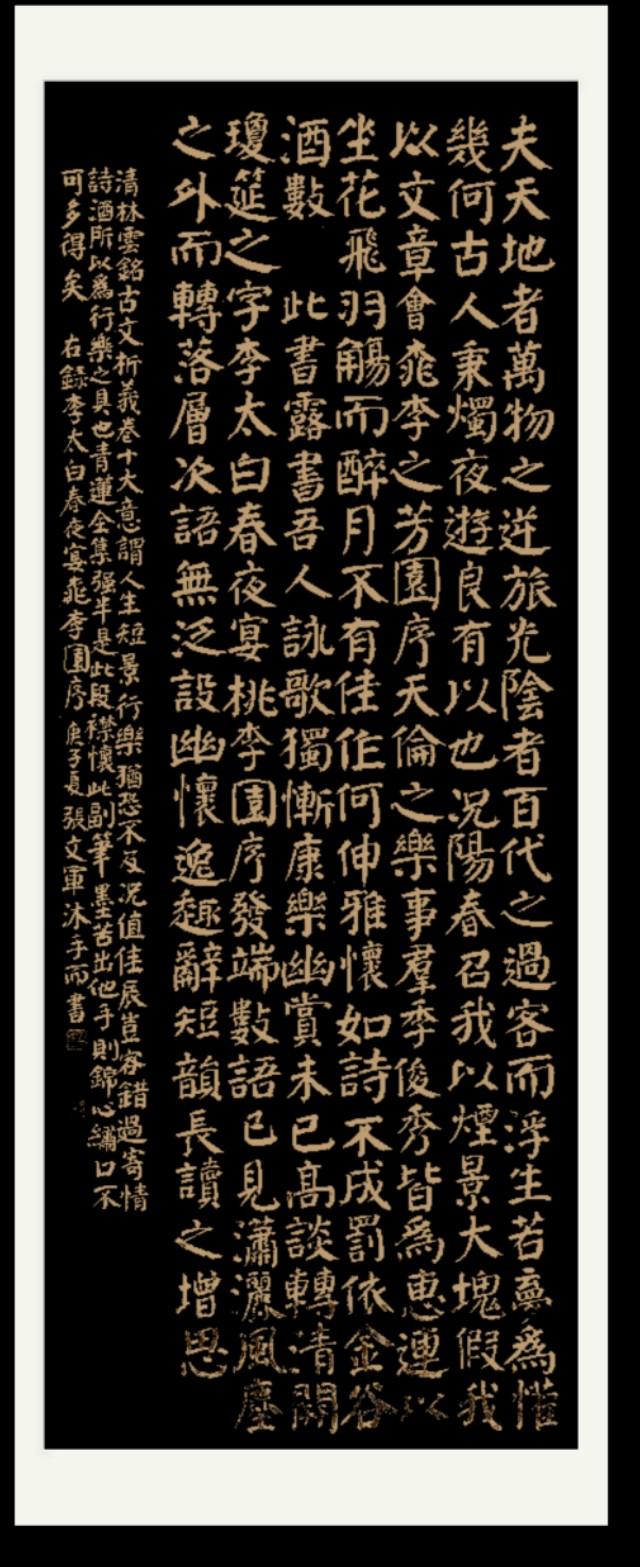 夫天地者萬物之逆旅光陰者百代之過客而浮生若夢為懽
幾何古人秉燭夜遊良有以也况陽春召我以煙景大塊假我
以文章會桃李之芳園序天倫之樂事羣季俊秀皆為惠連以
坐花飛羽觴而醉月不有佳作何伸雅懷如詩不成罰依金谷
酒數 此書露書吾人詠歌獨慚康樂幽賞未已高談轉清開
瓊筵之字李太白春夜宴桃李園序發端數語已見瀟灑風塵
之外而轉落層次語無泛設幽懷逸趣辭短韻長讀之增思
清林雲銘古文析義卷十大意謂人生短景行樂猶恐不及况值佳辰豈容錯過寄情
詩酒所以為行樂之具也青蓮全集强半是此段襟懷此副筆墨苦出他手則錦心繡口不
可多得矣 右錄李太白春夜宴桃李園序 庚子夏 張文軍沐手而書